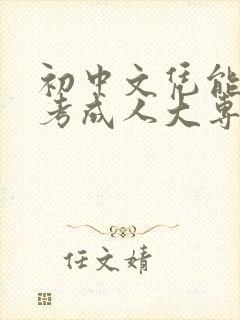 初中文凭能
考成人大专
任文婧